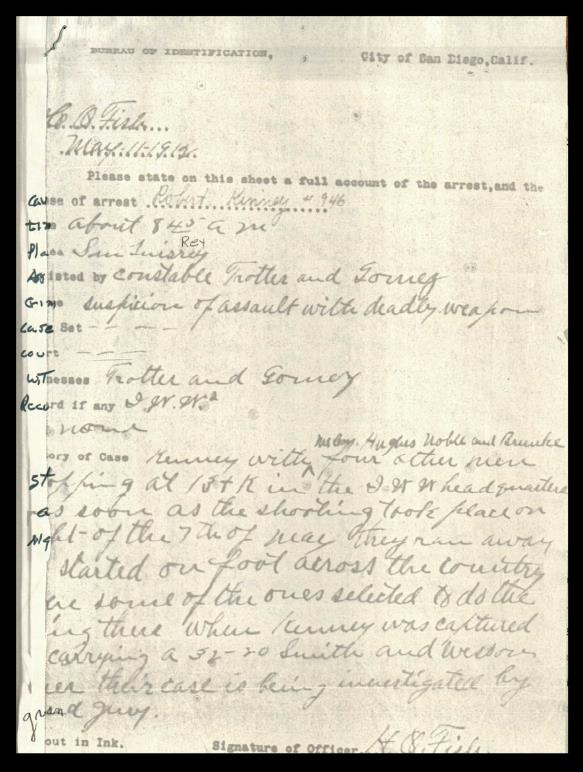 BUREAU OF IDENTIFICATION, , City of San Diego,Calif.
H. O. Fish...
May 11-1912.
Please state on this sheet a full account of the arrest,and the
cause of arrest Robert Kenney # 946
time about 8 45 a m
Rey
Place San Luisrey
Assisted by constable Trotter and Gomez
Crime suspicion of assault with deadly weapon
Case Set - - - -
court - - -
Witnesses Trotter and Gomez
Record if any I.W.W.s
none
Hughes Noble and
ory of Case Kenney with four other men
stopping at 13 & K in the I W W headquarters
as soon as the shooting took place on
night of the 7th of may they ran away
started on foot across the country
some of the ones selected to do the
ing there when Kenney was captured
carrying a 32-20 Smith and Wesson
their case is being investigated by
grand jury.
out in Ink. Signature of Officer. H. O. Fish